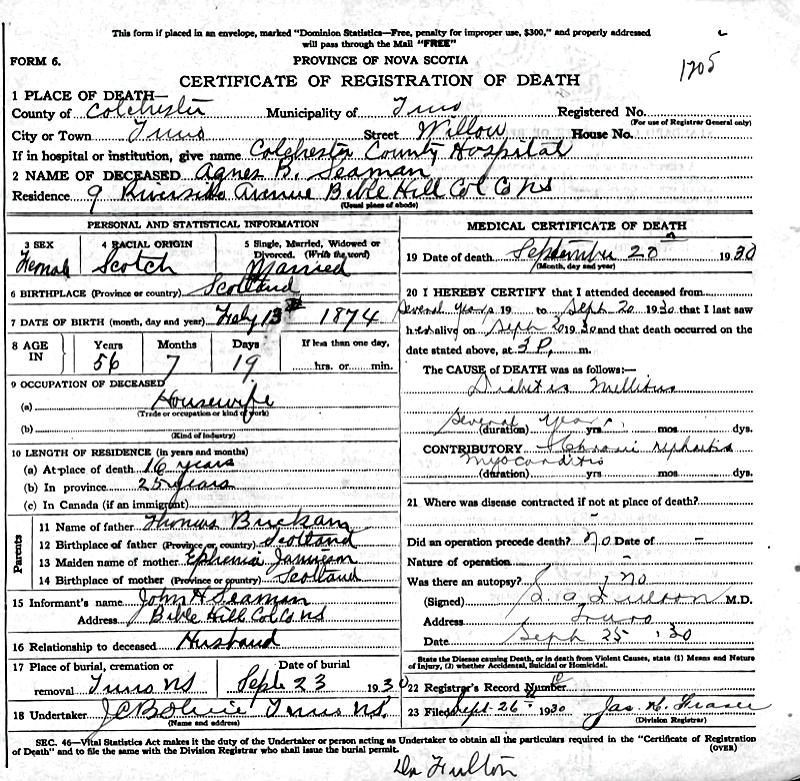 This form if placed in an envelope, marked "Dominion Statistics—Free, penalty for improper use, $300," and properly addressed
will pass through the Mail "FREE"
FORM 6.
PROVINCE OF NOVA SCOTIA
1205
CERTIFICATE OF REGISTRATION OF DEATH
1 PLACE OF DEATH—
County of Colchester Municipality of Truro Registered No.
(For use of Registrar General only)
City or Town Truro Street Willow House No.
If in hospital or institution, give name Colchester County Hospital
2 NAME OF DECEASED Agnes B. Seaman
Residence 9 Riverside Avenue Bible Hill Col Co NS
(Usual place of abode)
PERSONAL AND STATISTICAL INFORMATION
3 SEX Female
4 RACIAL ORIGIN Scotch
5 Single, Married, Widowed or Divorced. (Write the word) Married
6 BIRTHPLACE (Province or country) Scotland
7 DATE OF BIRTH (month, day and year) 13 1874
8 AGE IN
Years 56
Months 7
Days 19
If less than one day,
hrs. or min.
9 OCCUPATION OF DECEASED
(a) Housewife
(Trade or occupation or kind of work)
(b)
(Kind of industry)
10 LENGTH OF RESIDENCE (in years and months)
(a) At place of death 16 years
(b) In province 25 years
(c) In Canada (if an immigrant)
Parents
11 Name of father Thomas
12 Birthplace of father (Province or country) Scotland
13 Maiden name of mother Ephemia Jamieson
14 Birthplace of mother (Province or country) Scotland
15 Informant's name John H Seaman
Address Bible Hill Col Co NS
16 Relationship to deceased Husband
17 Place of burial, cremation or removal Truro NS
Date of burial Sept 23 1930
18 Undertaker Truro NS.
(Name and address)
MEDICAL CERTIFICATE OF DEATH
19 Date of death September 20 1930
(Month, day and year)
20 I HEREBY CERTIFY that I attended deceased from
Several years 19 to Sept 20 1930 that I last saw
her alive on Sept 20 1930 and that death occurred on
date stated above, at 3 P. m.
The CAUSE OF DEATH was as follows:
Diabetis Mellitus
Several Years
(duration) yrs mos dys.
CONTRIBUTORY Chronic nephritis
Myocarditis
(duration) yrs. mos dys.
21 Where was disease contracted if not at place of death?
Did an operation precede death? No Date of —
Nature of operation —
Was there an autopsy? no
(Signed) M.D.
Address Truro
Date Sept 25 '30
State the Disease causing Death, or in death from Violent Causes, state (1) Means and Nature
of Injury, (2) whether Accidental, Suicidal or Homicidal.
22 Registrar's Record Number
23 Filed Sept. 26 1930 Jas. Fraser
(Division Registrar)
SEC. 46—Vital Statistics Act makes it the duty of the Undertaker or person acting as Undertaker to obtain all the particulars required in the "Certificate of Registration
of Death" and to file the same with the Division Registrar who shall issue the burial permit.
(OVER)
Dr Fulton